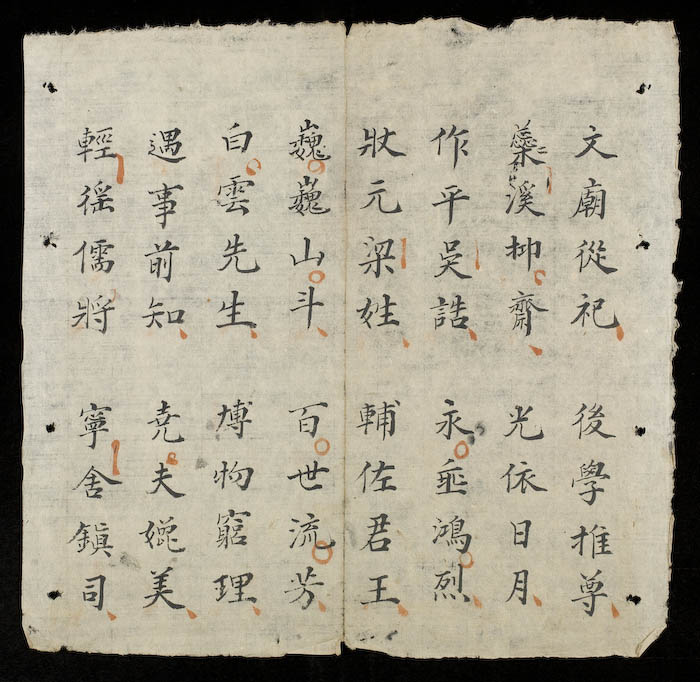 文廟從祀 後學推尊
蘂溪抑齋 光依日月
作平吳誥 永垂鴻烈
狀元梁姓 輔佐君王
巍巍山斗 百世流芳
白雲先生 博物窮理
遇事前知 尭夫媲美
輕徭儒將 寧舍鎭司